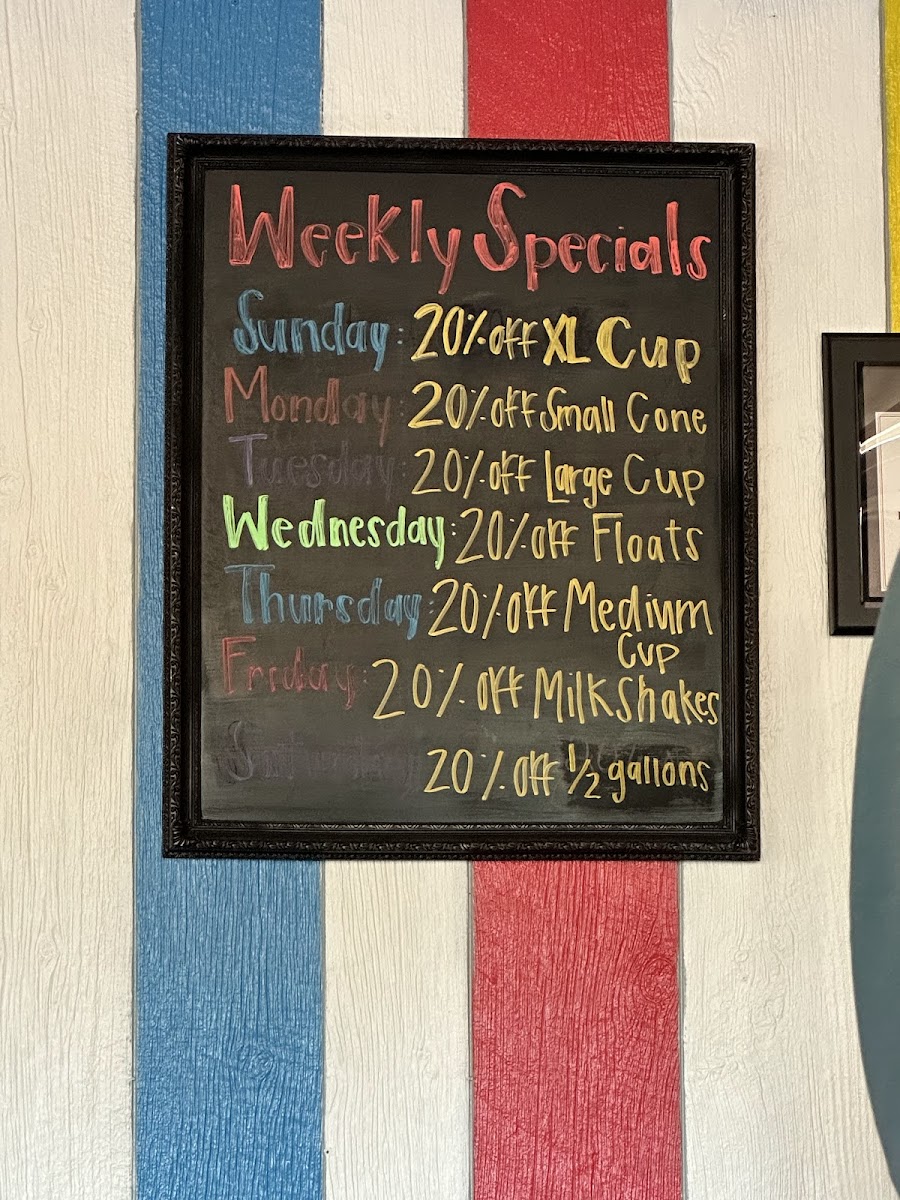 Weekly Specials
Sunday: 20% off XL Cup
Monday: 20% off Small Cone
Tuesday: 20% off Large Cup
Wednesday: 20% off Floats
Thursday: 20% off Medium
Cup
Friday: 20% off Milkshakes
Saturday 20% off 1/2 gallons